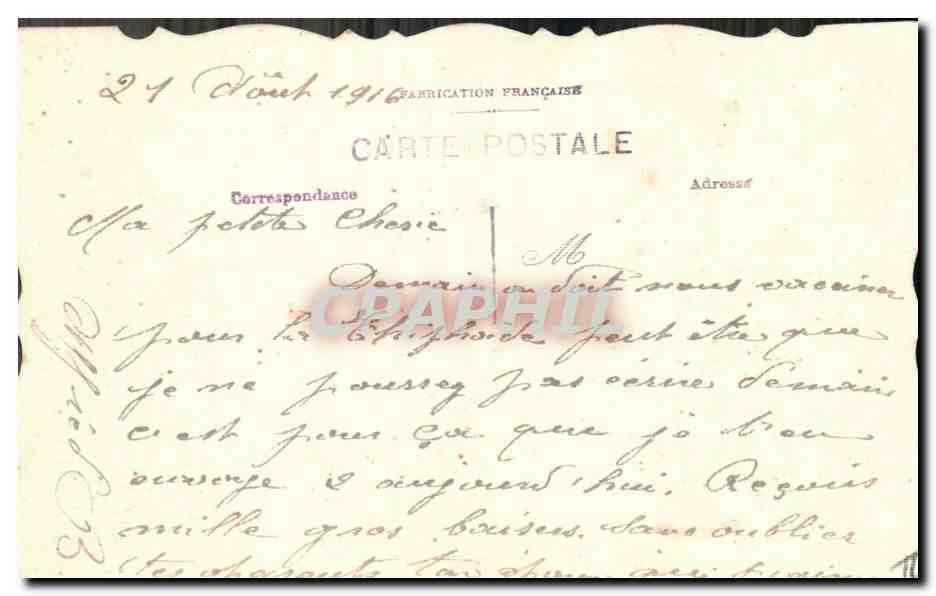 21 Août 1916
FABRICATION FRANÇAISE
CARTE POSTALE
Correspondance
Adresse
Ma petite Cherie
M
Demain on doit nous vacciner
CPAPHIL
pour la Thiphoïde peut être que
je ne pourrez pas ecrire demain
c'est pour ça que je t'en
2 aujourd'hui. Reçois
mille gros baisers. Sans oublier
tes parents
Alfred B